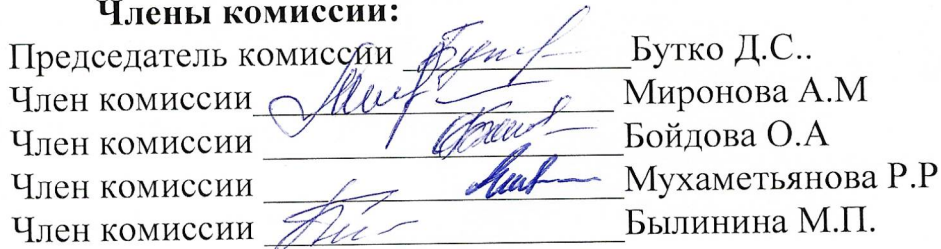 Члены комиссии:
Председатель комиссии Бутко Д.С..
Член комиссии Миронова А.М
Член комиссии Бойдова О.А
Член комиссии Мухаметьянова Р.Р
Член комиссии Былинина М.П.